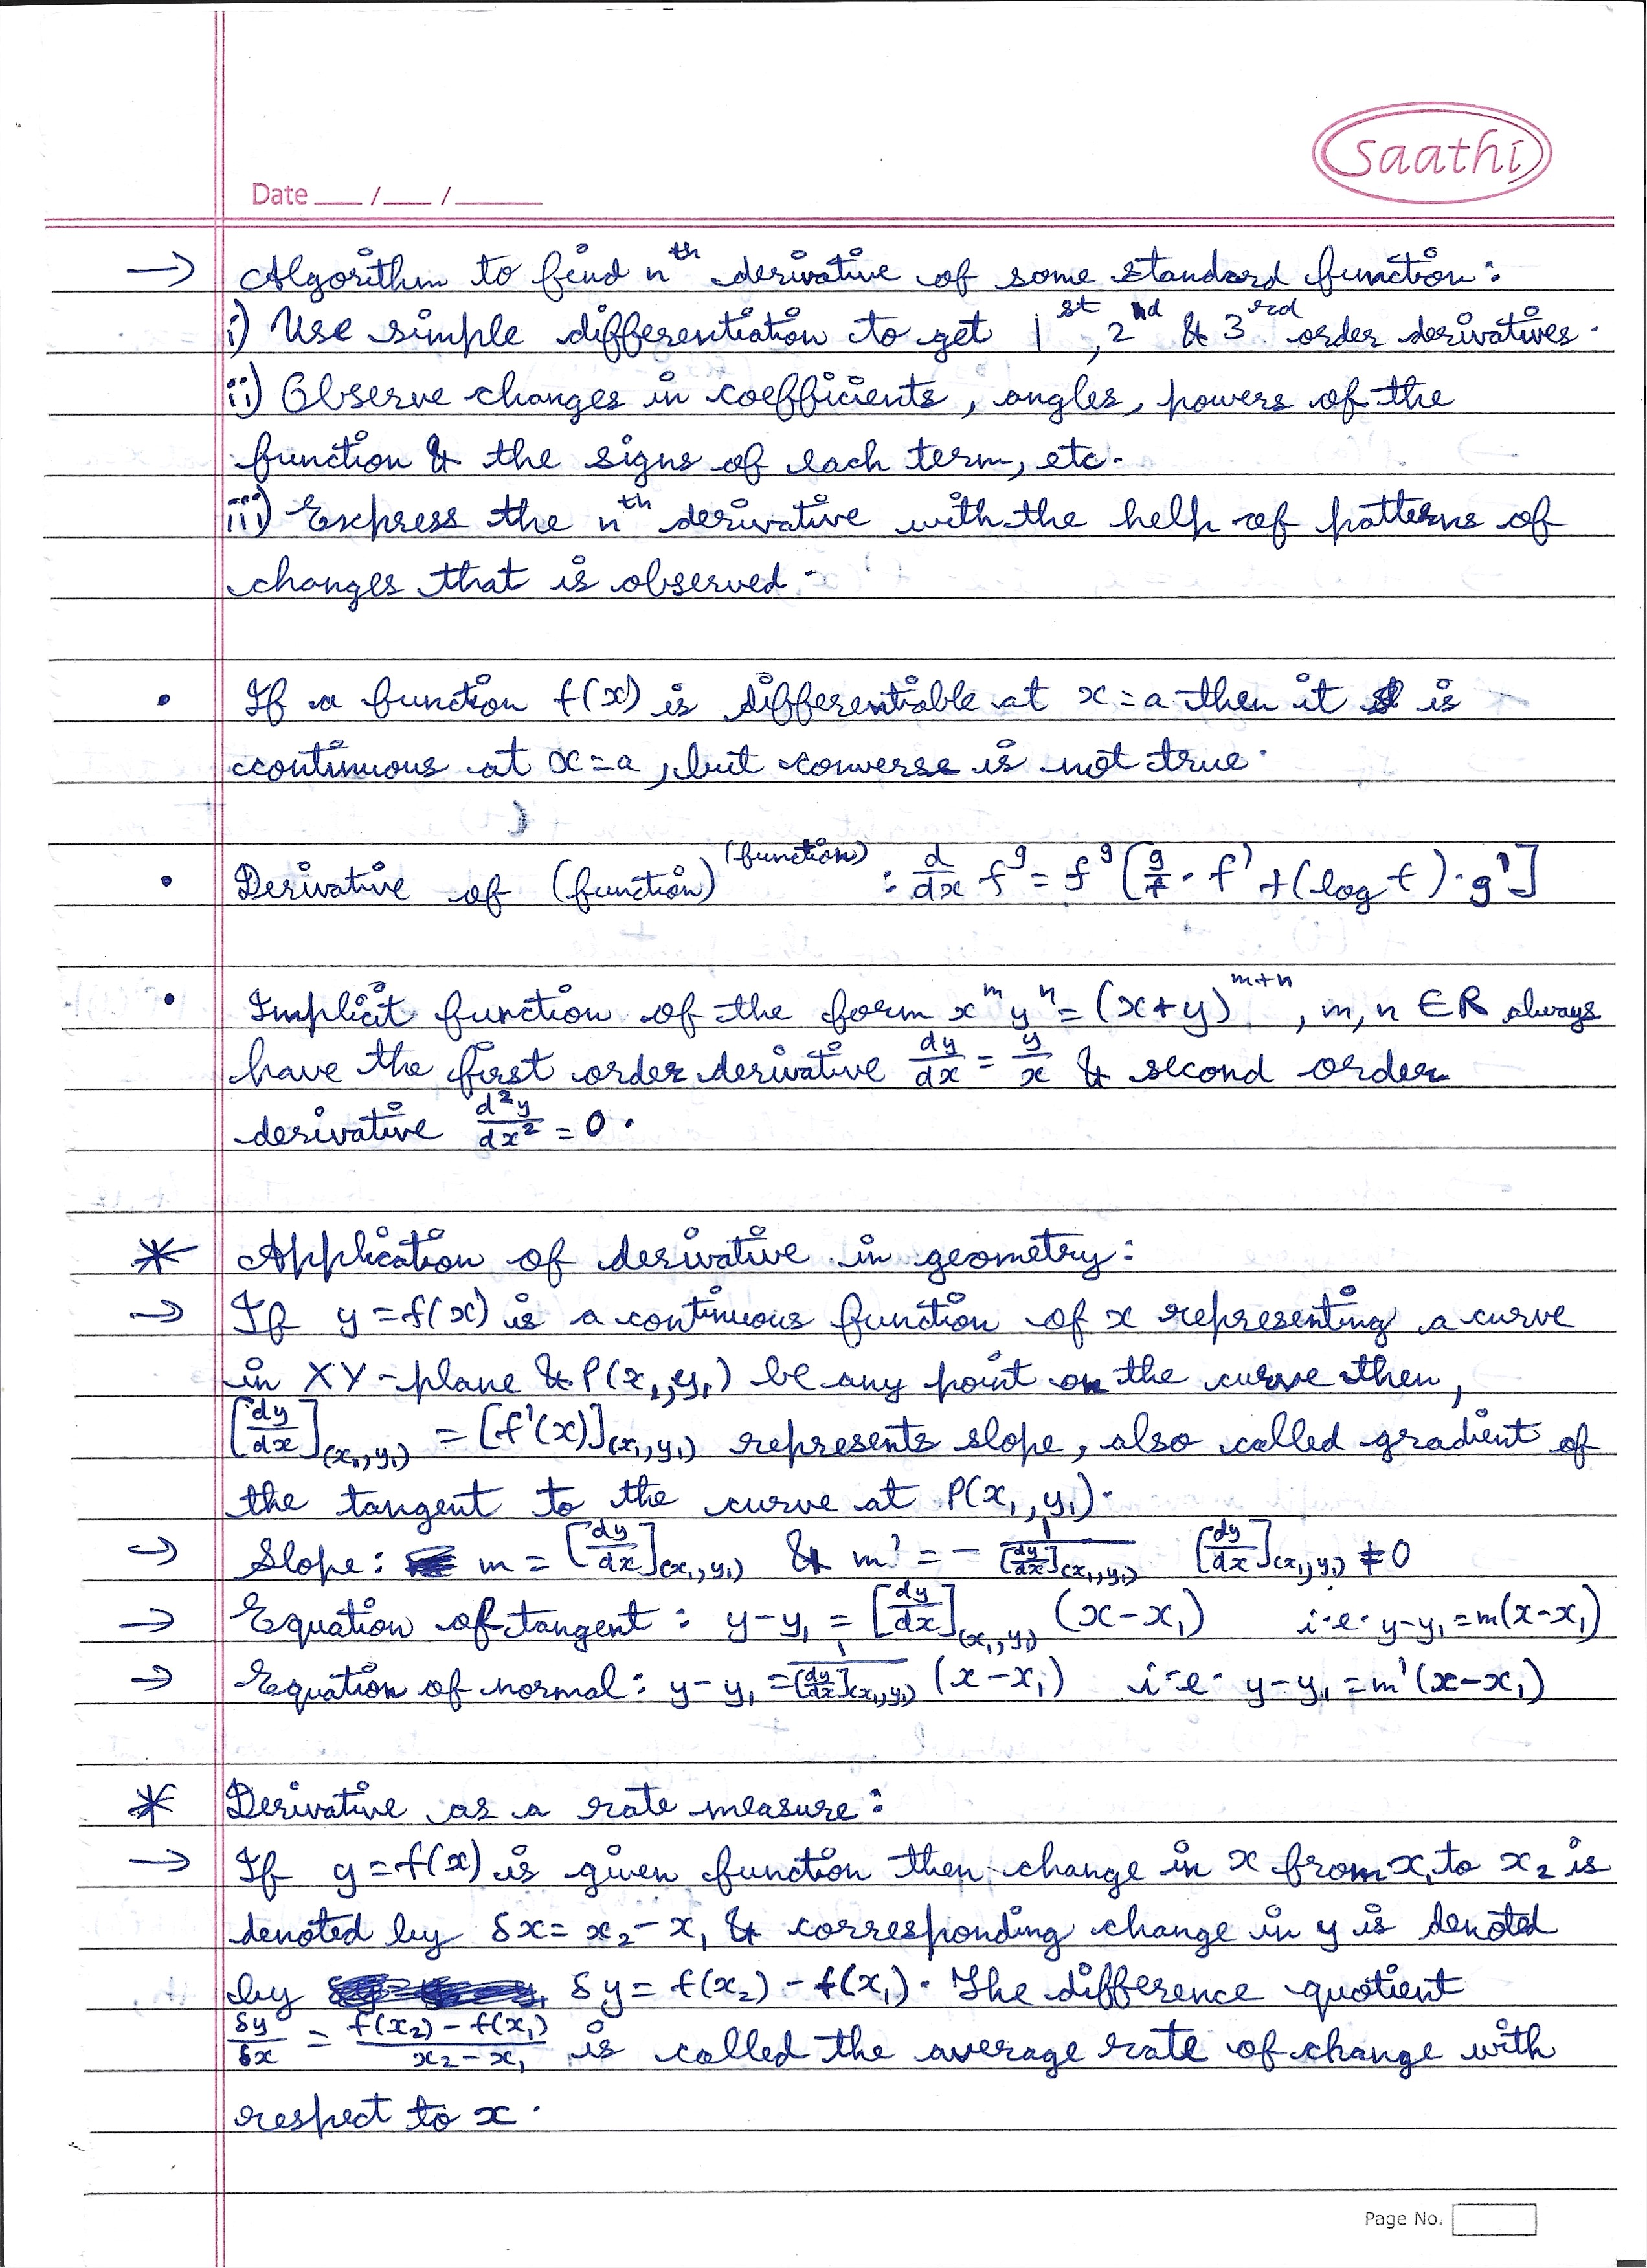 saathi
Date ___ /___ /_____
→ Algorithm to find nᵗʰ derivative of some standard function:
i) Use simple differentiation to get 1ˢᵗ, 2ⁿᵈ & 3ʳᵈ order derivatives.
ii) Observe changes in coefficients, angles, powers of the
function & the signs of each term, etc.
iii) Express the nᵗʰ derivative with the help of patterns of
changes that is observed.
• If a function f(x) is differentiable at x=a then it is
continuous at x=a, but converse is not true.
• Derivative of (function)^(function) : d/dx f^g = f^g [g/f · f' + (log f)·g']
• Implicit function of the form x^m y^n = (x+y)^(m+n), m,n ∈ R always
have the first order derivative dy/dx = y/x & second order
derivative d²y/dx² = 0.
* Application of derivative in geometry:
→ If y=f(x) is a continuous function of x representing a curve
in XY-plane & P(x₁,y₁) be any point on the curve then,
[dy/dx](x₁,y₁) = [f'(x)](x₁,y₁) represents slope, also called gradient of
the tangent to the curve at P(x₁,y₁).
→ Slope: m = [dy/dx](x₁,y₁) & m' = - 1/[dy/dx](x₁,y₁) [dy/dx](x₁,y₁) ≠ 0
→ Equation of tangent: y-y₁ = [dy/dx](x₁,y₁) (x-x₁) i.e. y-y₁=m(x-x₁)
→ Equation of normal: y-y₁ = 1/[dy/dx](x₁,y₁) (x-x₁) i.e. y-y₁=m'(x-x₁)
* Derivative as a rate measure:
→ If y=f(x) is given function then change in x from x₁ to x₂ is
denoted by δx= x₂-x₁ & corresponding change in y is denoted
by δy= f(x₂)-f(x₁). The difference quotient
δy/δx = f(x₂)-f(x₁)/x₂-x₁ is called the average rate of change with
respect to x.
Page No.